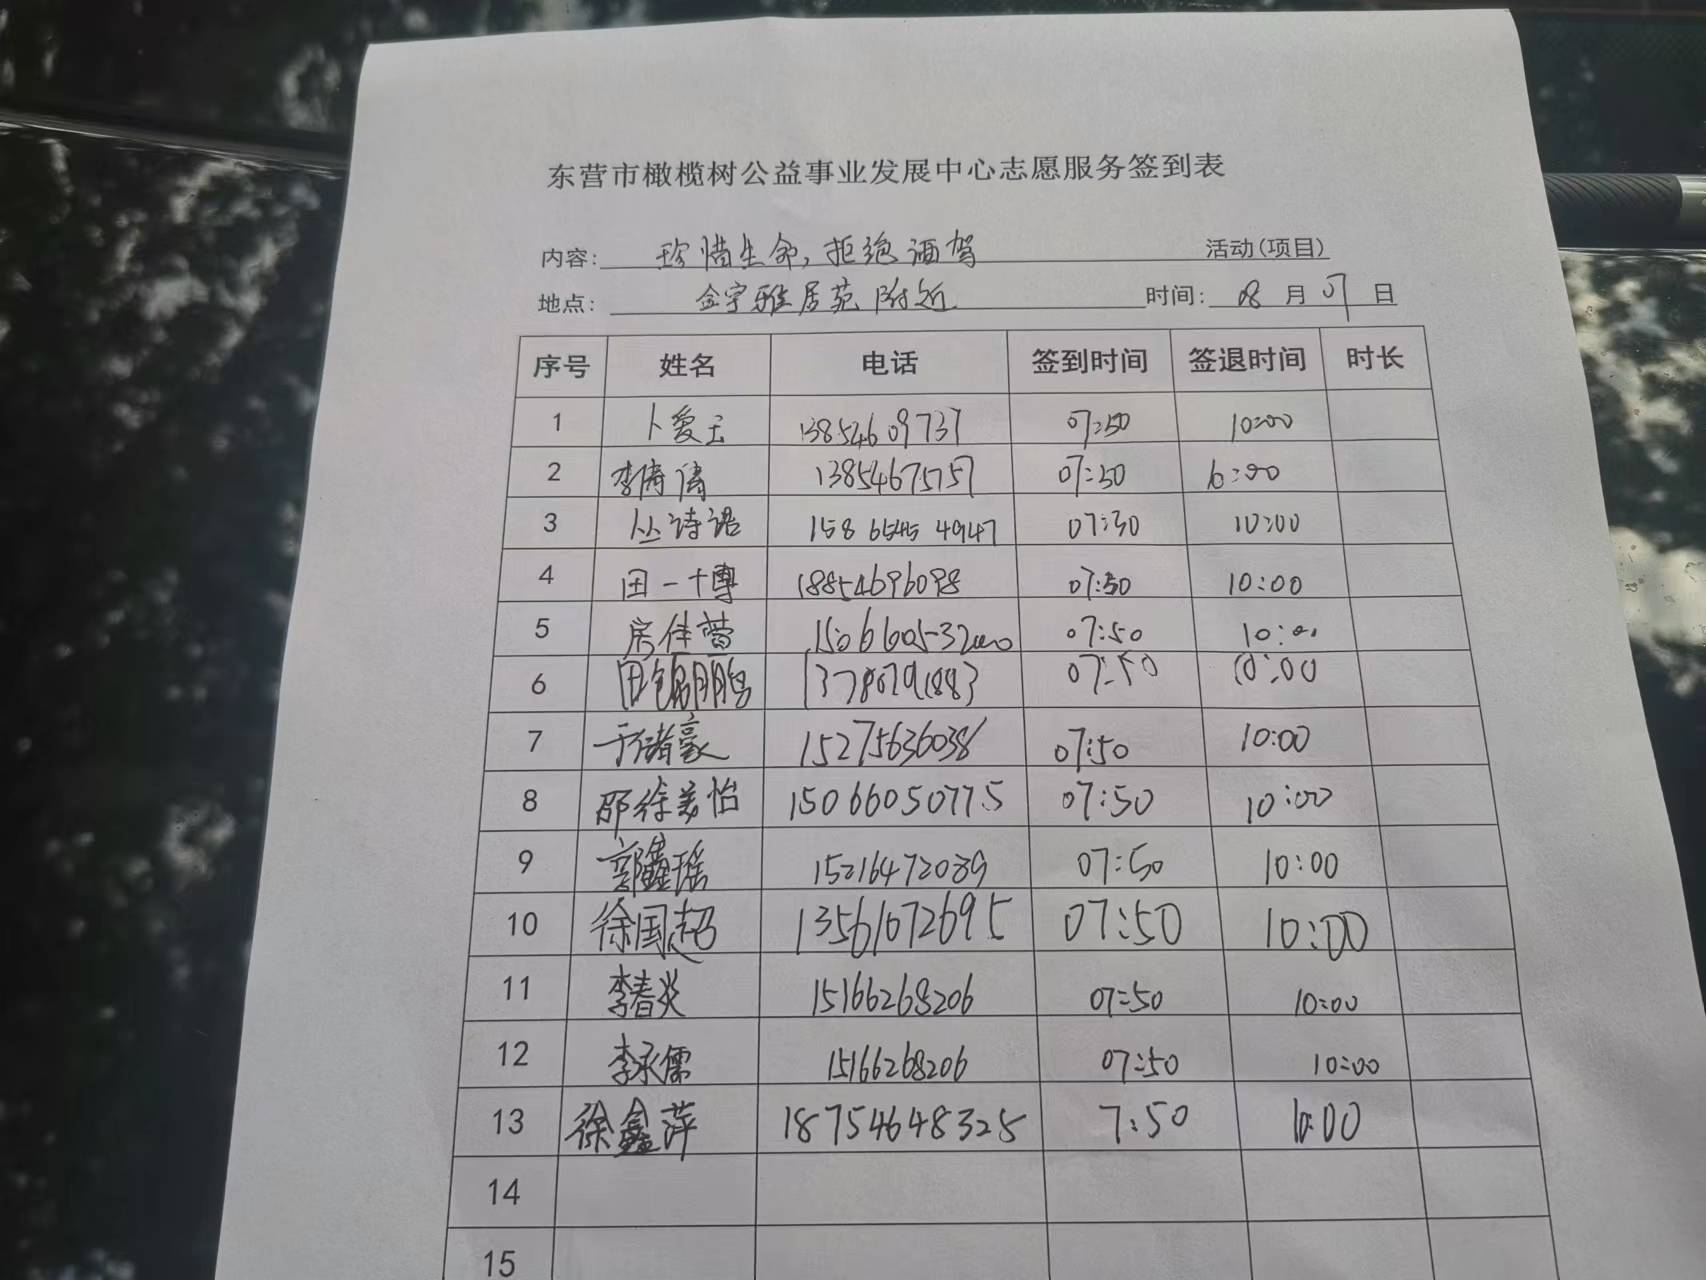 东营市橄榄树公益事业发展中心志愿服务签到表
内容: 珍惜生命,拒绝酒驾 活动(项目)
地点: 金宇雅居苑附近 时间: 08 月 07 日
序号 姓名 电话 签到时间 签退时间 时长
1 卜爱玉 13854609737 07:50 10:00
2 李倩倩 13854675757 07:50 10:00
3 丛诗语 158 6545 4947 07:30 10:00
4 田一博 18854696098 07:50 10:00
5 房佳萱 07:50 10:00
6 07:50 10:00
7 于储豪 15275636038 07:50 10:00
8 邵徐美怡 15066050775 07:50 10:00
9 郭鑫瑶 15216472039 07:50 10:00
10 徐国超 13561072695 07:50 10:00
11 李春炎 15166268206 07:50 10:00
12 李承儒 15166268206 07:50 10:00
13 徐鑫萍 18754648325 7:50 10:00
14
15